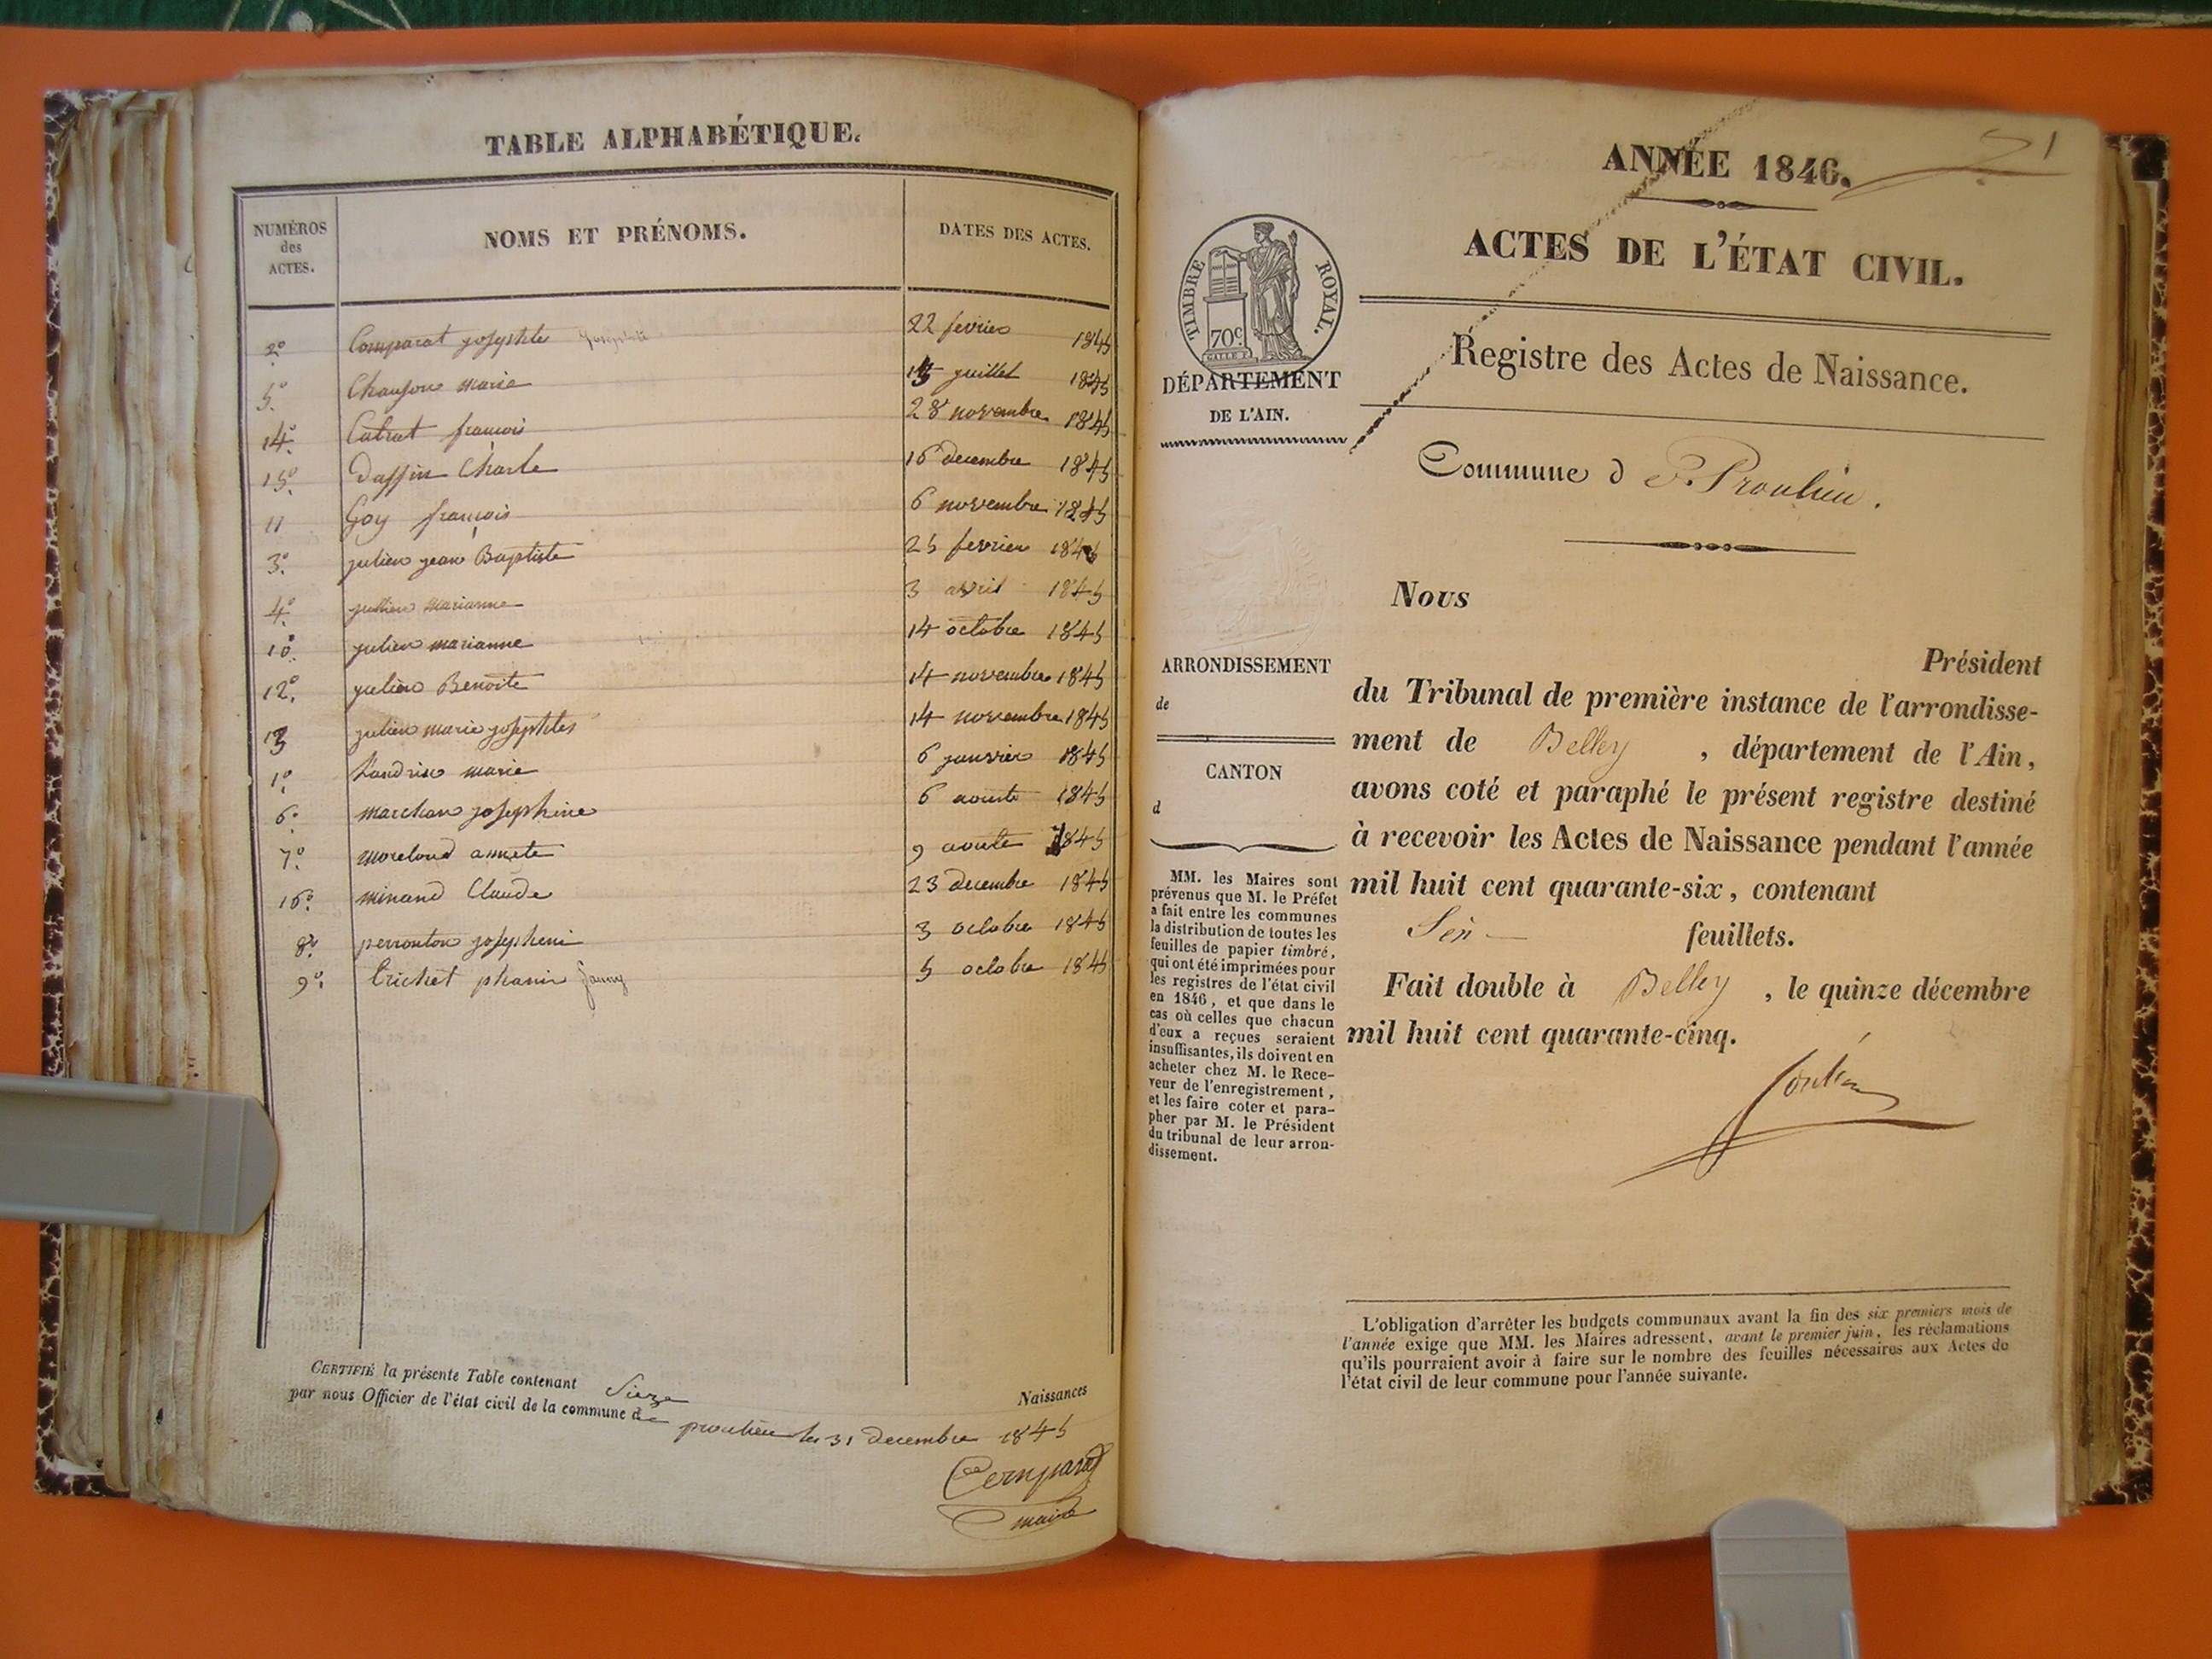 TABLE ALPHABÉTIQUE.
NUMÉROS des ACTES. NOMS ET PRÉNOMS. DATES DES ACTES.
2° Comparat josephte 22 fevrier 1845
5° marie 15 juillet 1845
14° françois 28 novembre 1845
15° Charle 16 decembre 1845
11 Goy françois 6 novembre 1845
3° julien jean Baptiste 25 fevrier 1845
4° jullien marianne 3 avril 1845
10° julien marianne 14 octobre 1845
12° julien Benoite 14 novembre 1845
13 julien marie josephtes 14 novembre 1845
1° marie 6 janvier 1845
6° marchan josephine 6 aoute 1845
7° annete 9 aoute 1845
16° minand Claude 23 decembre 1845
8° 3 octobre 1845
9° trichet phanie fanny 5 octobre 1845
CERTIFIÉ la présente Table contenant Sieze Naissances
par nous Officier de l'état civil de la commune de proulieu les 31 decembre 1845
Comparat
maire
21
ANNÉE 1846.
ACTES DE L'ÉTAT CIVIL.
TIMBRE ROYAL.
70c
DÉPARTEMENT
DE L'AIN.
Registre des Actes de Naissance.
Commune d Proulieu.
Nous
Président
du Tribunal de première instance de l'arrondisse-
ment de Belley, département de l'Ain,
avons coté et paraphé le présent registre destiné
à recevoir les Actes de Naissance pendant l'année
mil huit cent quarante-six, contenant
feuillets.
Fait double à Belley, le quinze décembre
mil huit cent quarante-cinq.
ARRONDISSEMENT
de
CANTON
d
MM. les Maires sont
prévenus que M. le Préfet
a fait entre les communes
la distribution de toutes les
feuilles de papier timbré,
qui ont été imprimées pour
les registres de l'état civil
en 1846, et que dans le
cas où celles que chacun
d'eux a reçues seraient
insuffisantes, ils doivent en
acheter chez M. le Rece-
veur de l'enregistrement,
et les faire coter et para-
pher par M. le Président
du tribunal de leur arron-
dissement.
L'obligation d'arrêter les budgets communaux avant la fin des six premiers mois de
l'année exige que MM. les Maires adressent, avant le premier juin, les réclamations
qu'ils pourraient avoir à faire sur le nombre des feuilles nécessaires aux Actes de
l'état civil de leur commune pour l'année suivante.